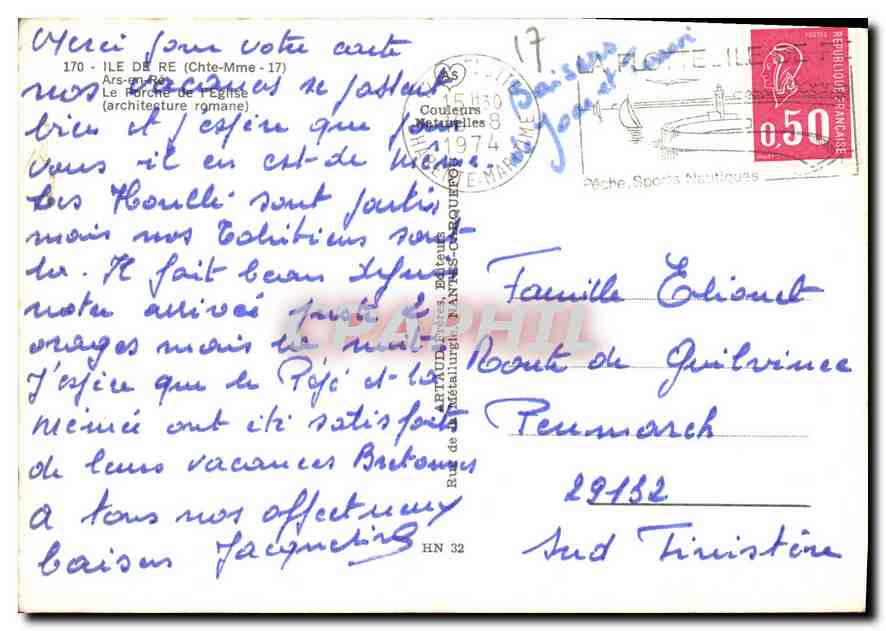 Merci pour votre carte
170 - ILE DE RE (Chte-Mme - 17)
Ars-en-Ré
Le Porche de l'Eglise
(architecture romane)
nos vacances se passent
bien et j'espère que pour
vous il en est de même.
Les Houllé sont partis
mais nos Tahitiens sont
là. Il fait beau depuis
notre arrivée juste 2
orages mais la nuit.
J'espère que le Pépé et la
Mémée ont été satisfaits
de leurs vacances Bretonnes
A tous nos affectueux
baisers Jacqueline
As
Couleurs
Naturelles
ARTAUD Frères, Editeurs
Rue de la Métallurgie, NANTES-CARQUEFOU
HN 32
17
Baisers
15H30
8
1974
CHARENTE-MARITIME
LA FLOTTE ILE DE RE
Pêche, Sports Nautiques
POSTES
REPUBLIQUE FRANCAISE
0,50
Famille
Route de Guilvinec
Penmarch
29132
Sud Finistère
CPAPHIL